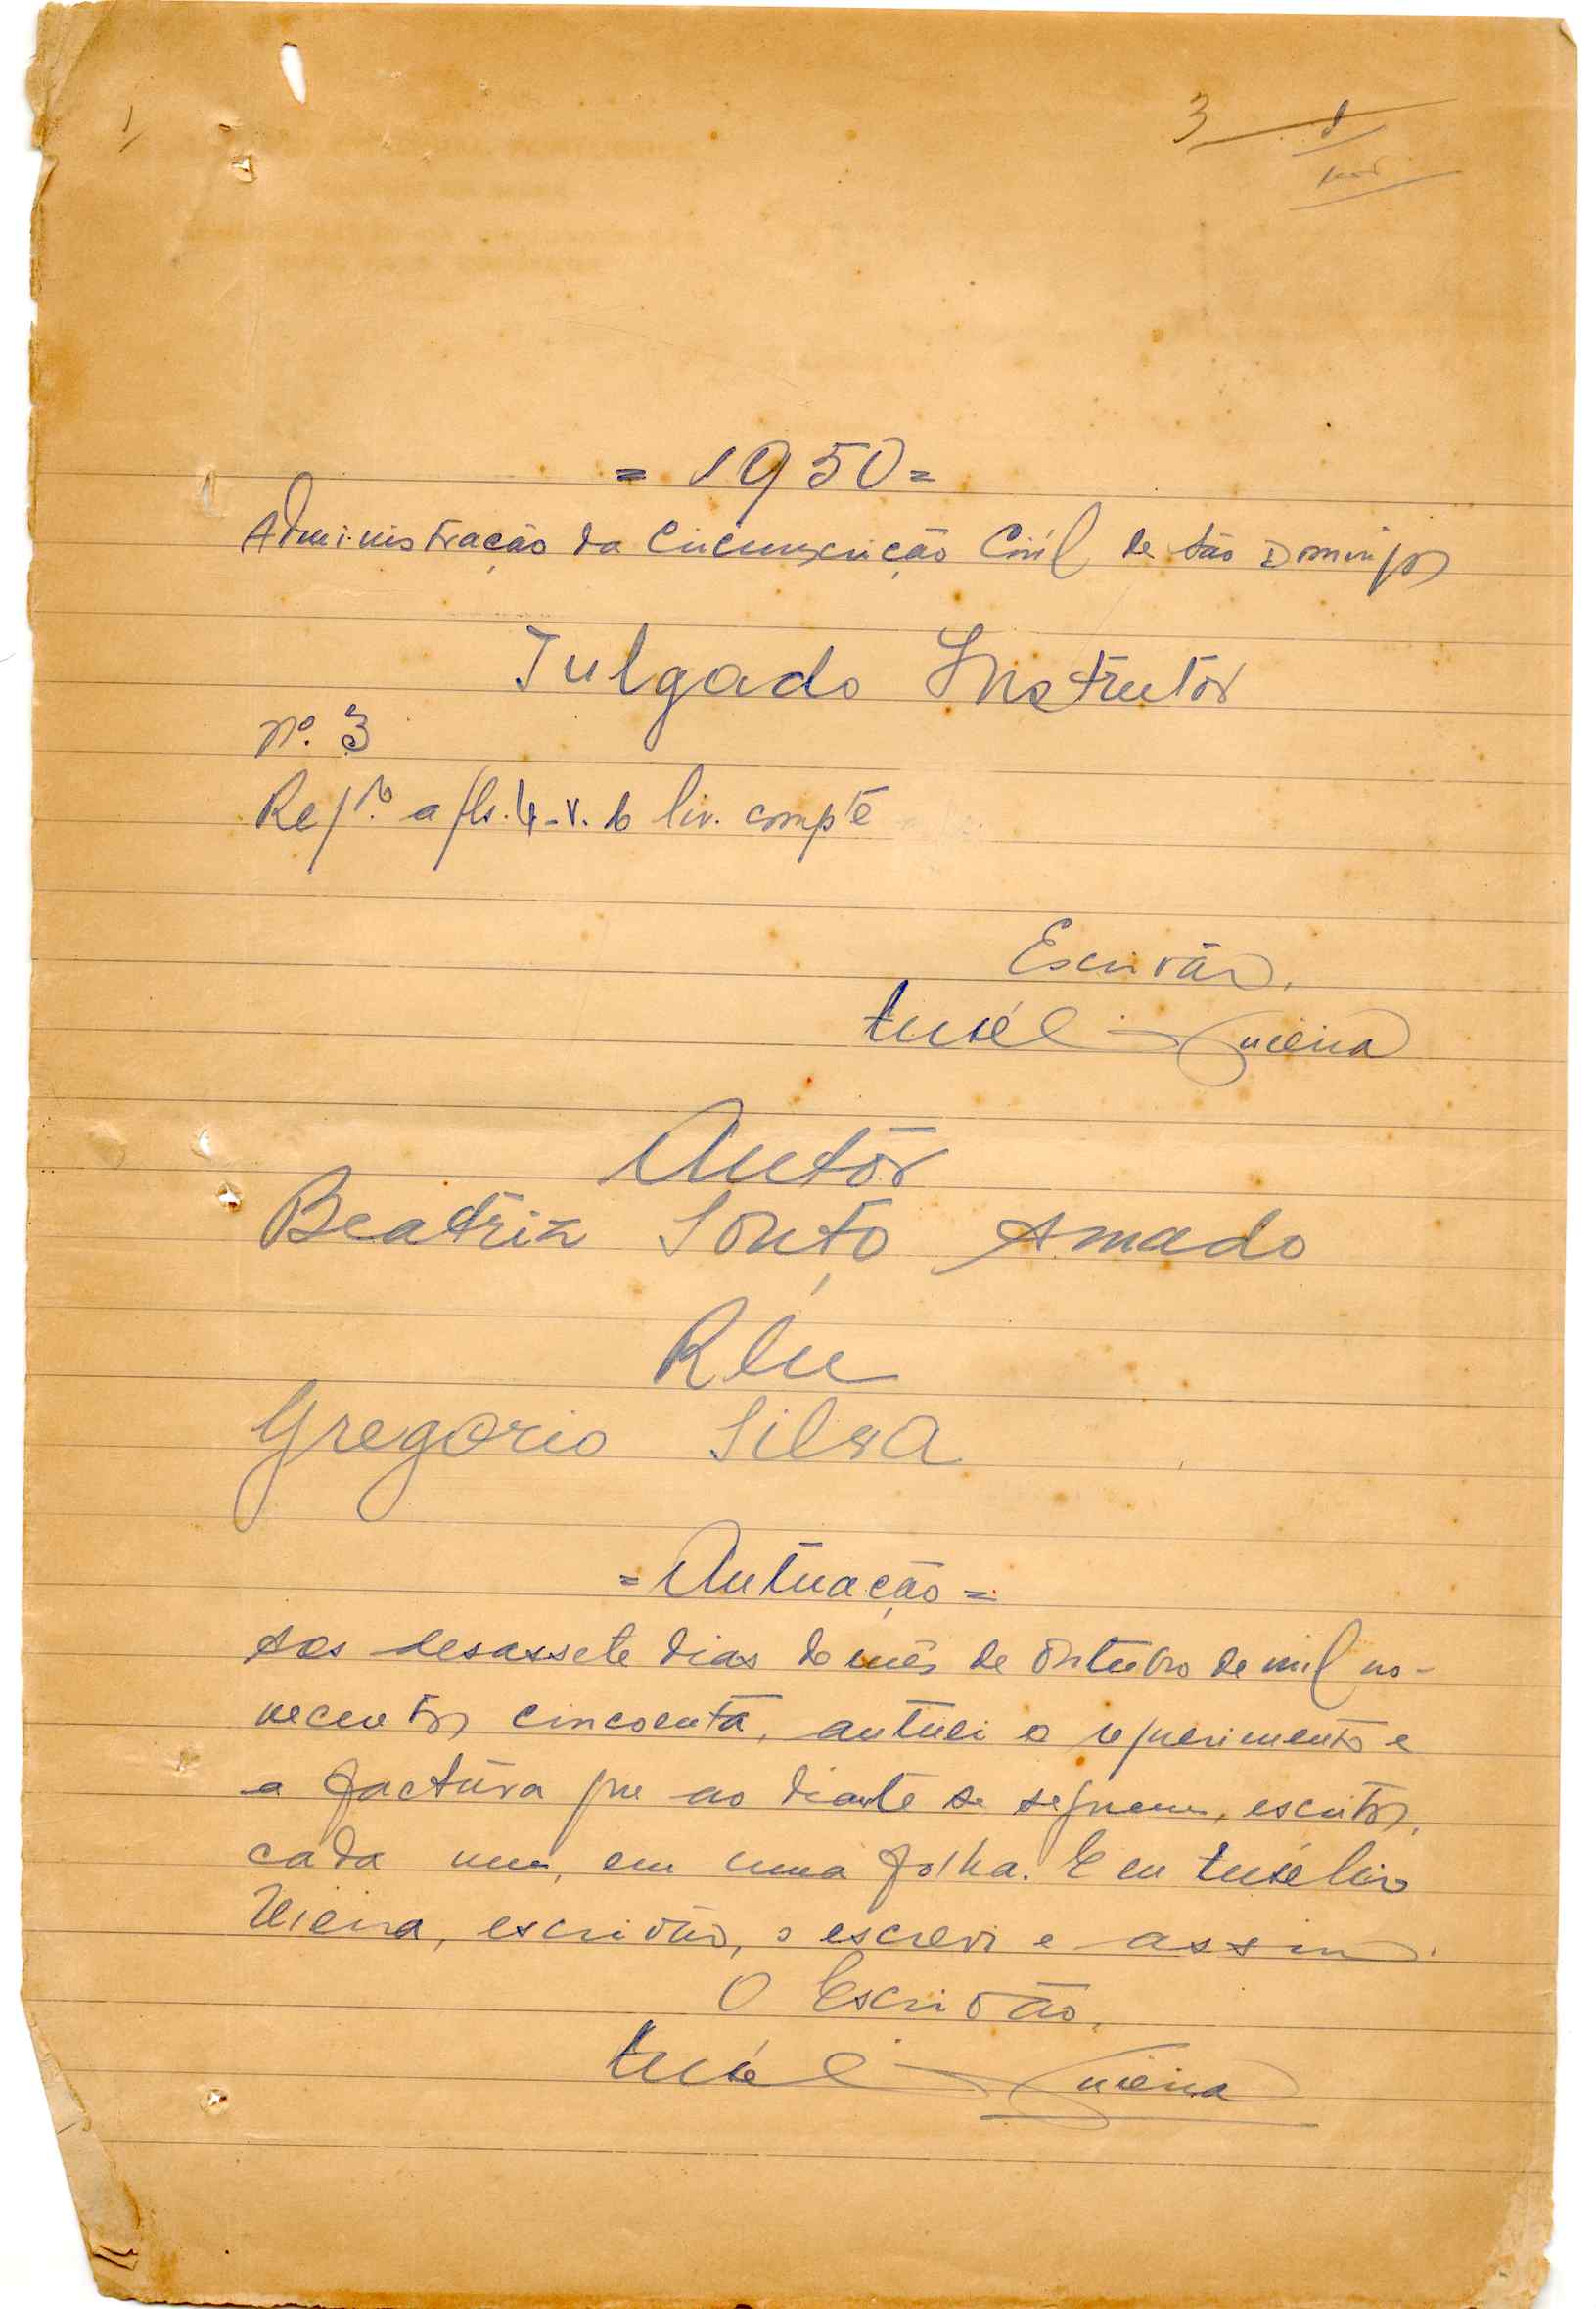 3
= 1950 =
Administração da Circunscrição Civil de São Domingos
Julgado Instrutor
Nº. 3
Regº. a fls. 4-v. do liv. compte
Escrivão,
Vieira
Autor
Beatriz Souto Amado
Réu
Gregorio Silva
= Autuação =
Aos desassete dias do mês de Outubro de mil no-
vecentos cincoenta, autuei o requerimento e
a factura que ao diante se seguem, escritos,
cada um, em uma folha. E eu
Vieira, escrivão, o escrevi e assino.
O Escrivão,
Vieira